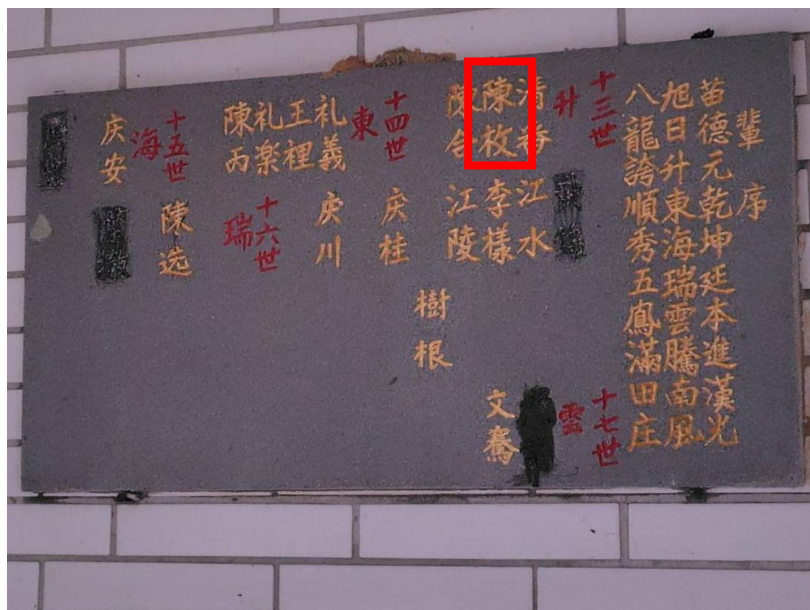 輩序
苗德元乾坤延本進漢光
旭日升東海瑞雲騰南風
八龍誇順秀五鳳滿田庄
十三世
升
清香
陳枚
陳合
江水
李様
江陵
十四世
東
礼義
王裡
礼楽
陳丙
庆桂
庆川
樹根
十五世
海
庆安
陳选
十六世
瑞
十七世
雲
文騫